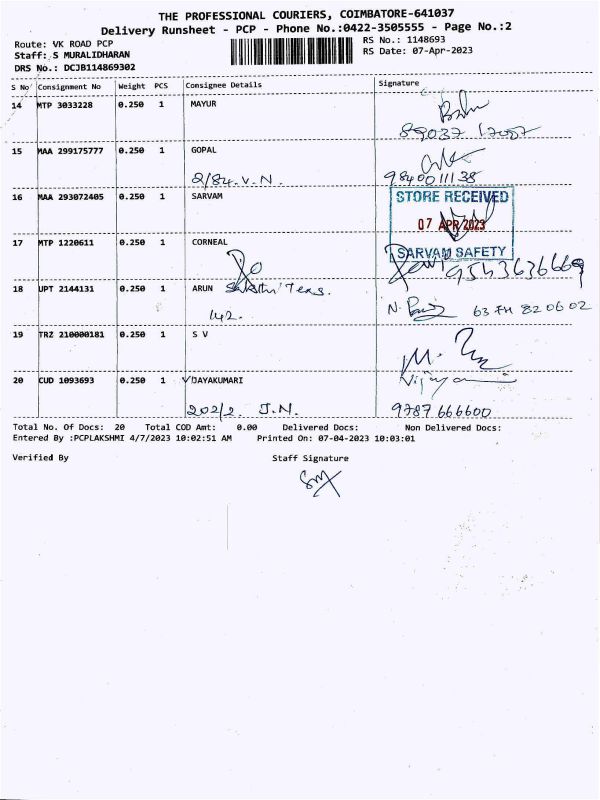 THE PROFESSIONAL COURIERS, COIMBATORE-641037
Delivery Runsheet - PCP - Phone No.:0422-3505555 - Page No.:2
Route: VK ROAD PCP
Staff: S MURALIDHARAN
DRS No.: DCJB114869302
RS No.: 1148693
RS Date: 07-Apr-2023
S No Consignment No Weight PCS Consignee Details Signature
14 MTP 3033228 0.250 1 MAYUR
15 MAA 299175777 0.250 1 GOPAL
2/84. V. N. 9840011138
16 MAA 293072405 0.250 1 SARVAM
STORE RECEIVED
07 APR 2023
SARVAM SAFETY
17 MTP 1220611 0.250 1 CORNEAL
9543636669
18 UPT 2144131 0.250 1 ARUN Sakthi Texs.
142.
19 TRZ 210000181 0.250 1 S V
20 CUD 1093693 0.250 1 VIJAYAKUMARI
202/2. J.N. 9787 666600
Total No. Of Docs: 20 Total COD Amt: 0.00 Delivered Docs: Non Delivered Docs:
Entered By :PCPLAKSHMI 4/7/2023 10:02:51 AM Printed On: 07-04-2023 10:03:01
Verified By Staff Signature